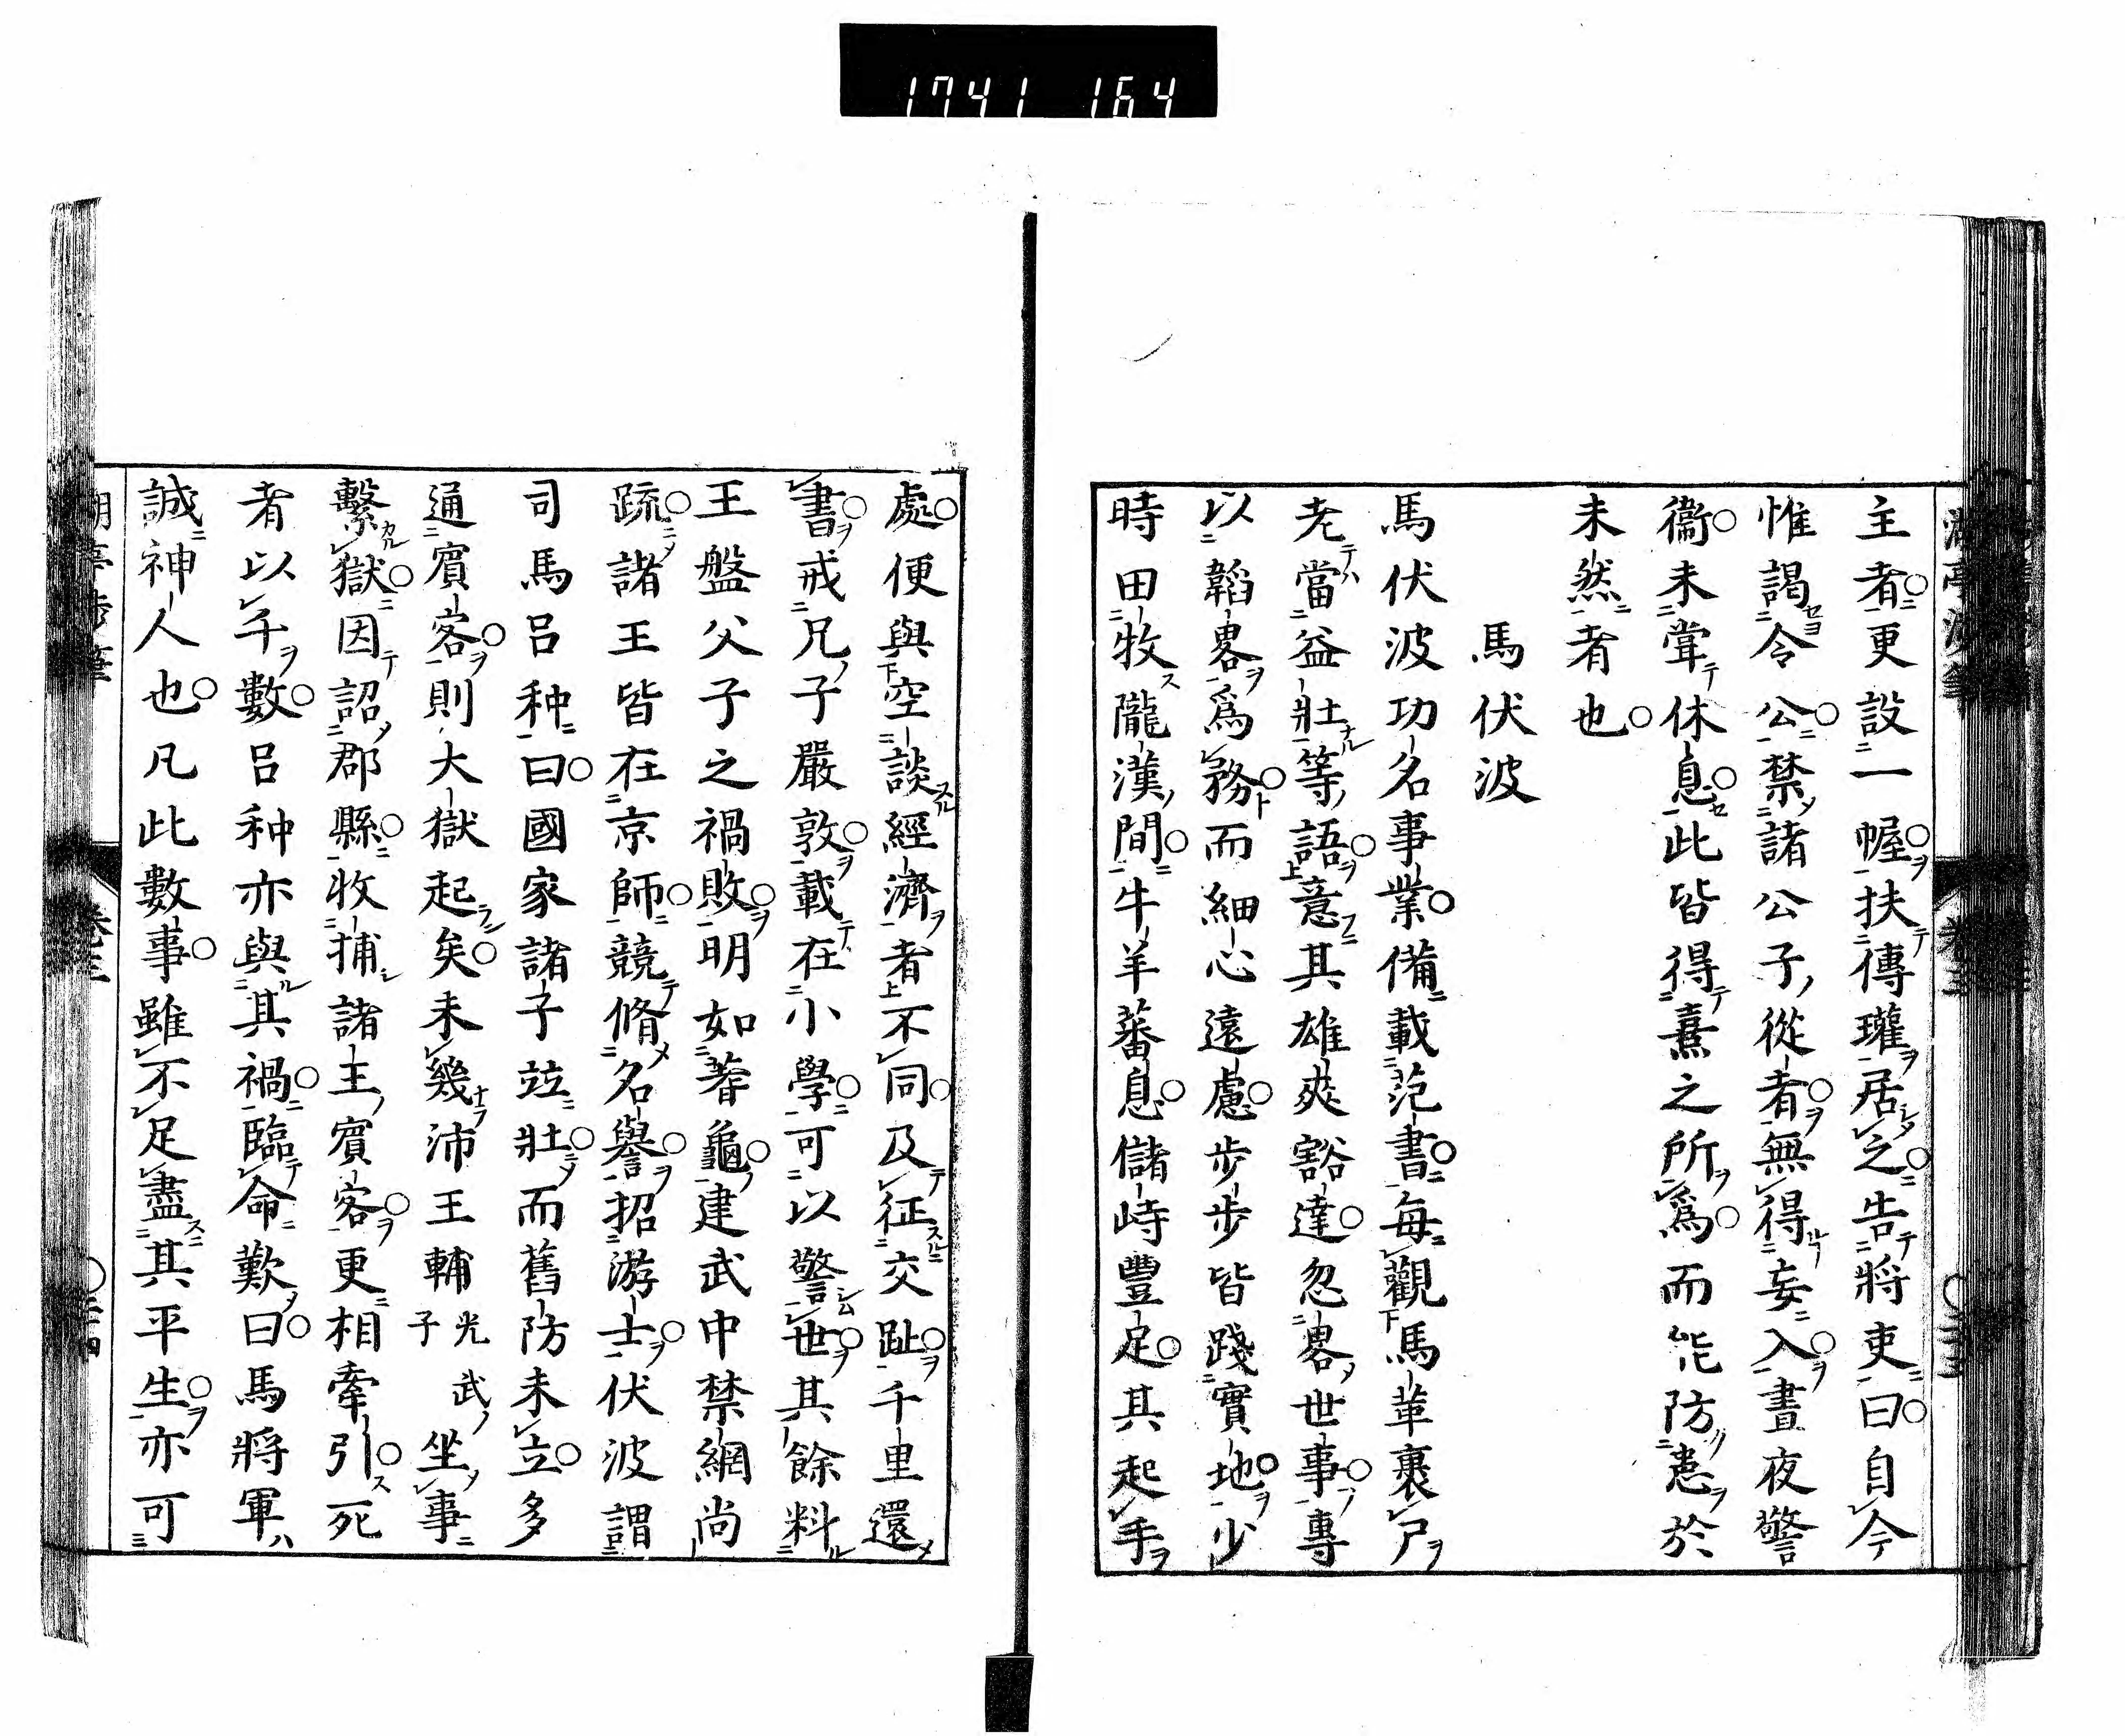 1741 164
主者更設一幄扶傳瓘居之告將吏曰自今
惟謁令公禁諸公子從者無得妄入晝夜警
衞未甞休息此皆得熹之所爲而能防患於
未然者也
馬伏波
馬伏波功名事業備載范書每觀馬革裹尸
老當益壯等語意其雄爽豁達忽畧世事專
以韜畧爲務而細心遠慮步步皆踐實地少
時田牧隴漢間牛羊蕃息儲峙豐足其起手
處便與空談經濟者不同及征交趾千里還
書戒兄子嚴敦載在小學可以警世其餘料
王盤父子之禍敗明如蓍龜建武中禁網尚
疏諸王皆在京師競脩名譽招游士伏波謂
司馬呂种曰國家諸子竝壯而舊防未立多
通賓客則大獄起矣未幾沛王輔光武子坐事
繫獄因詔郡縣收捕諸王賓客更相牽引死
者以千數呂种亦與其禍臨命歎曰馬將軍
誠神人也凡此數事雖不足盡其平生亦可
卷三